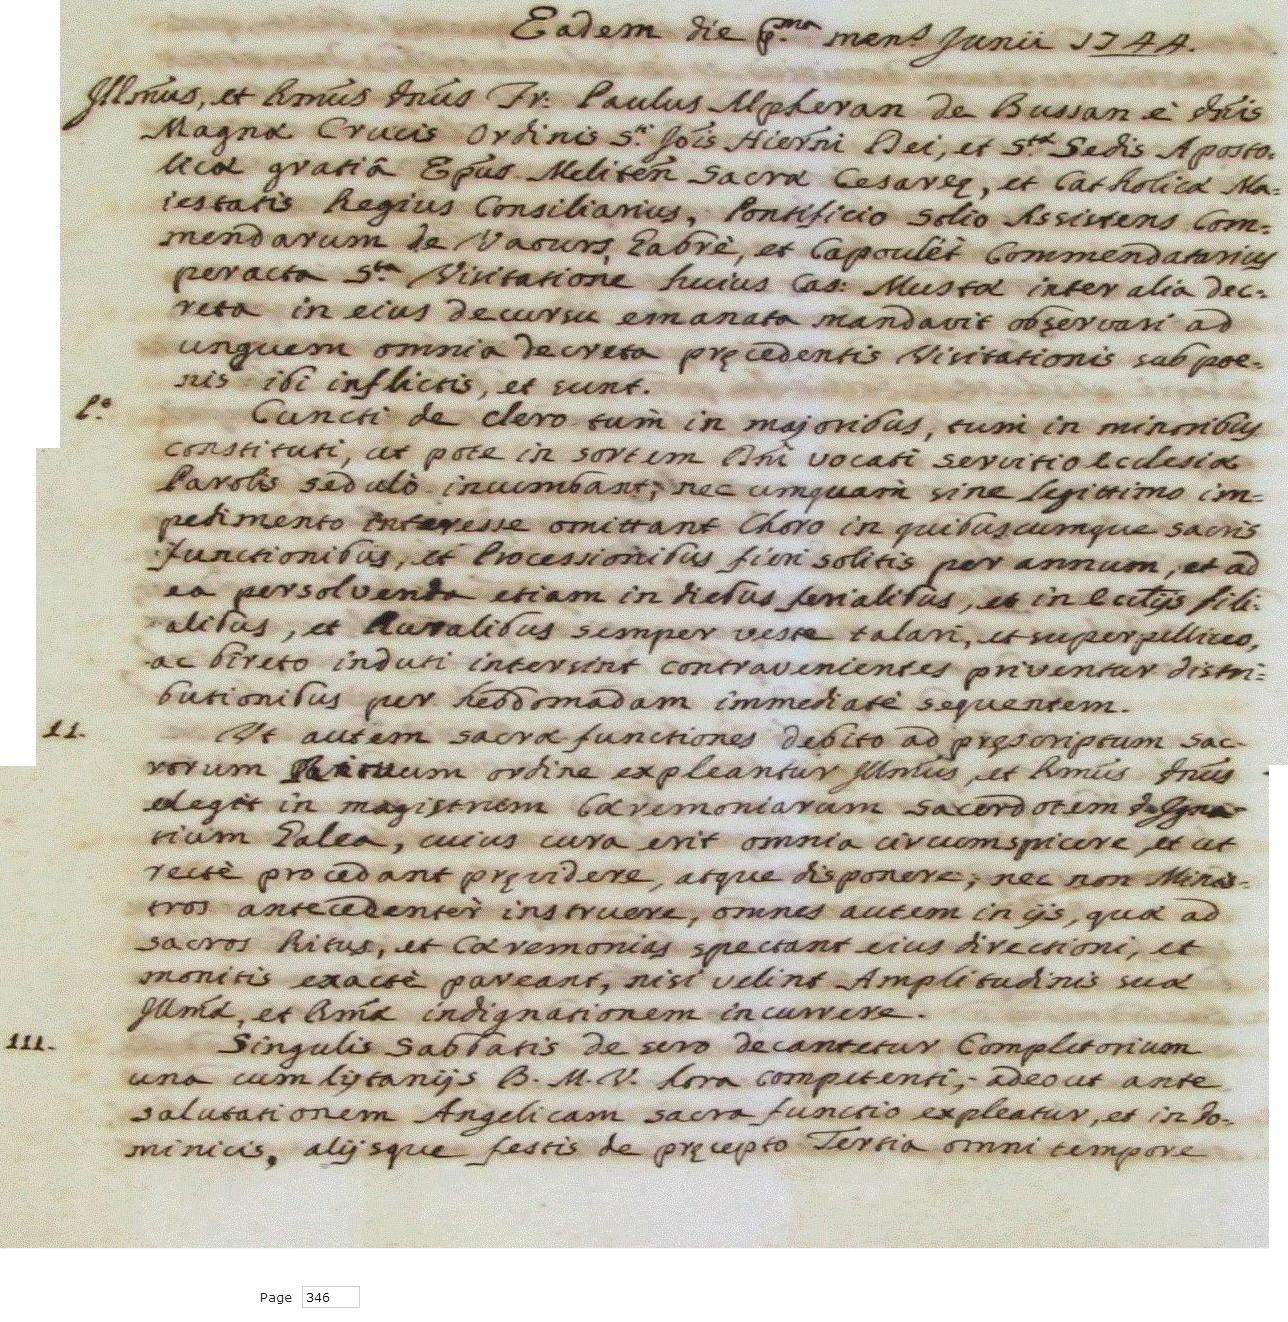 Eadem die p.ma mens. Junii 1744.
Illmus, et Rmus Dnus Fr: Paulus Alpheran de Bussan è Dnis
Magnæ Crucis Ordinis S.ti Jois Hierni Dei, et S.tæ Sedis Aposto-
licæ gratiâ Epus Meliten Sacræ Cesareę, et Catholicæ Ma-
iestatis Regius Consiliarius, Pontificio Solio Assistens Com-
mendarum de Vaours, et Capoulèt Commendatarius
peracta S.ta Visitatione huius Cas: Mustæ inter alia dec-
reta in eius decursu emanata mandavit observari ad
unguem omnia decreta pręcedentis Visitationis sub poe-
nis ibi inflictis, et sunt.
I.º Cuncti de clero tum in majoribus, tum in minoribus
constituti, ut pote in sortem Dni vocati servitio Ecclesiæ
Parolis sedulò incumbant; nec umquam sine legittimo im-
pedimento interesse omittant Choro in quibuscumque sacris
functionibus, et Processionibus fieri solitis per annum, et ad
ea persolvenda etiam in diebus ferialibus, et in Ecclijs fili-
alibus, et Ruralibus semper veste talari, et superpelliceo,
ac bireto induti intersint contravenientes priventur distri-
butionibus per hebdomadam immediatè sequentem.
II. Ut autem sacræ functiones debito ad pręscriptum sac-
rorum Rituum ordine expleantur Illmus, et Rmus Dnus
elegit in magistrum Cæremoniarum Sacerdotem D. Igna-
tium Galea, cuius cura erit omnia circumspicere, et ut
rectè procedant pręvidere, atque disponere; nec non Minis-
tros antecedenter instruere, omnes autem in ijs, quæ ad
sacros Ritus, et Cæremonias spectant eius directioni, et
monitis exactè pareant, nisi velint Amplitudinis suæ
Illmæ, et Rmæ indignationem incurrere.
III. Singulis Sabbatis de sero decantetur Completorium
una cum lytanijs B. M. V. hora competenti, adeout ante
salutationem Angelicam sacra functio expleatur, et in Do-
minicis, alijsque festis de pręcepto Tertia omni tempore
Page 346